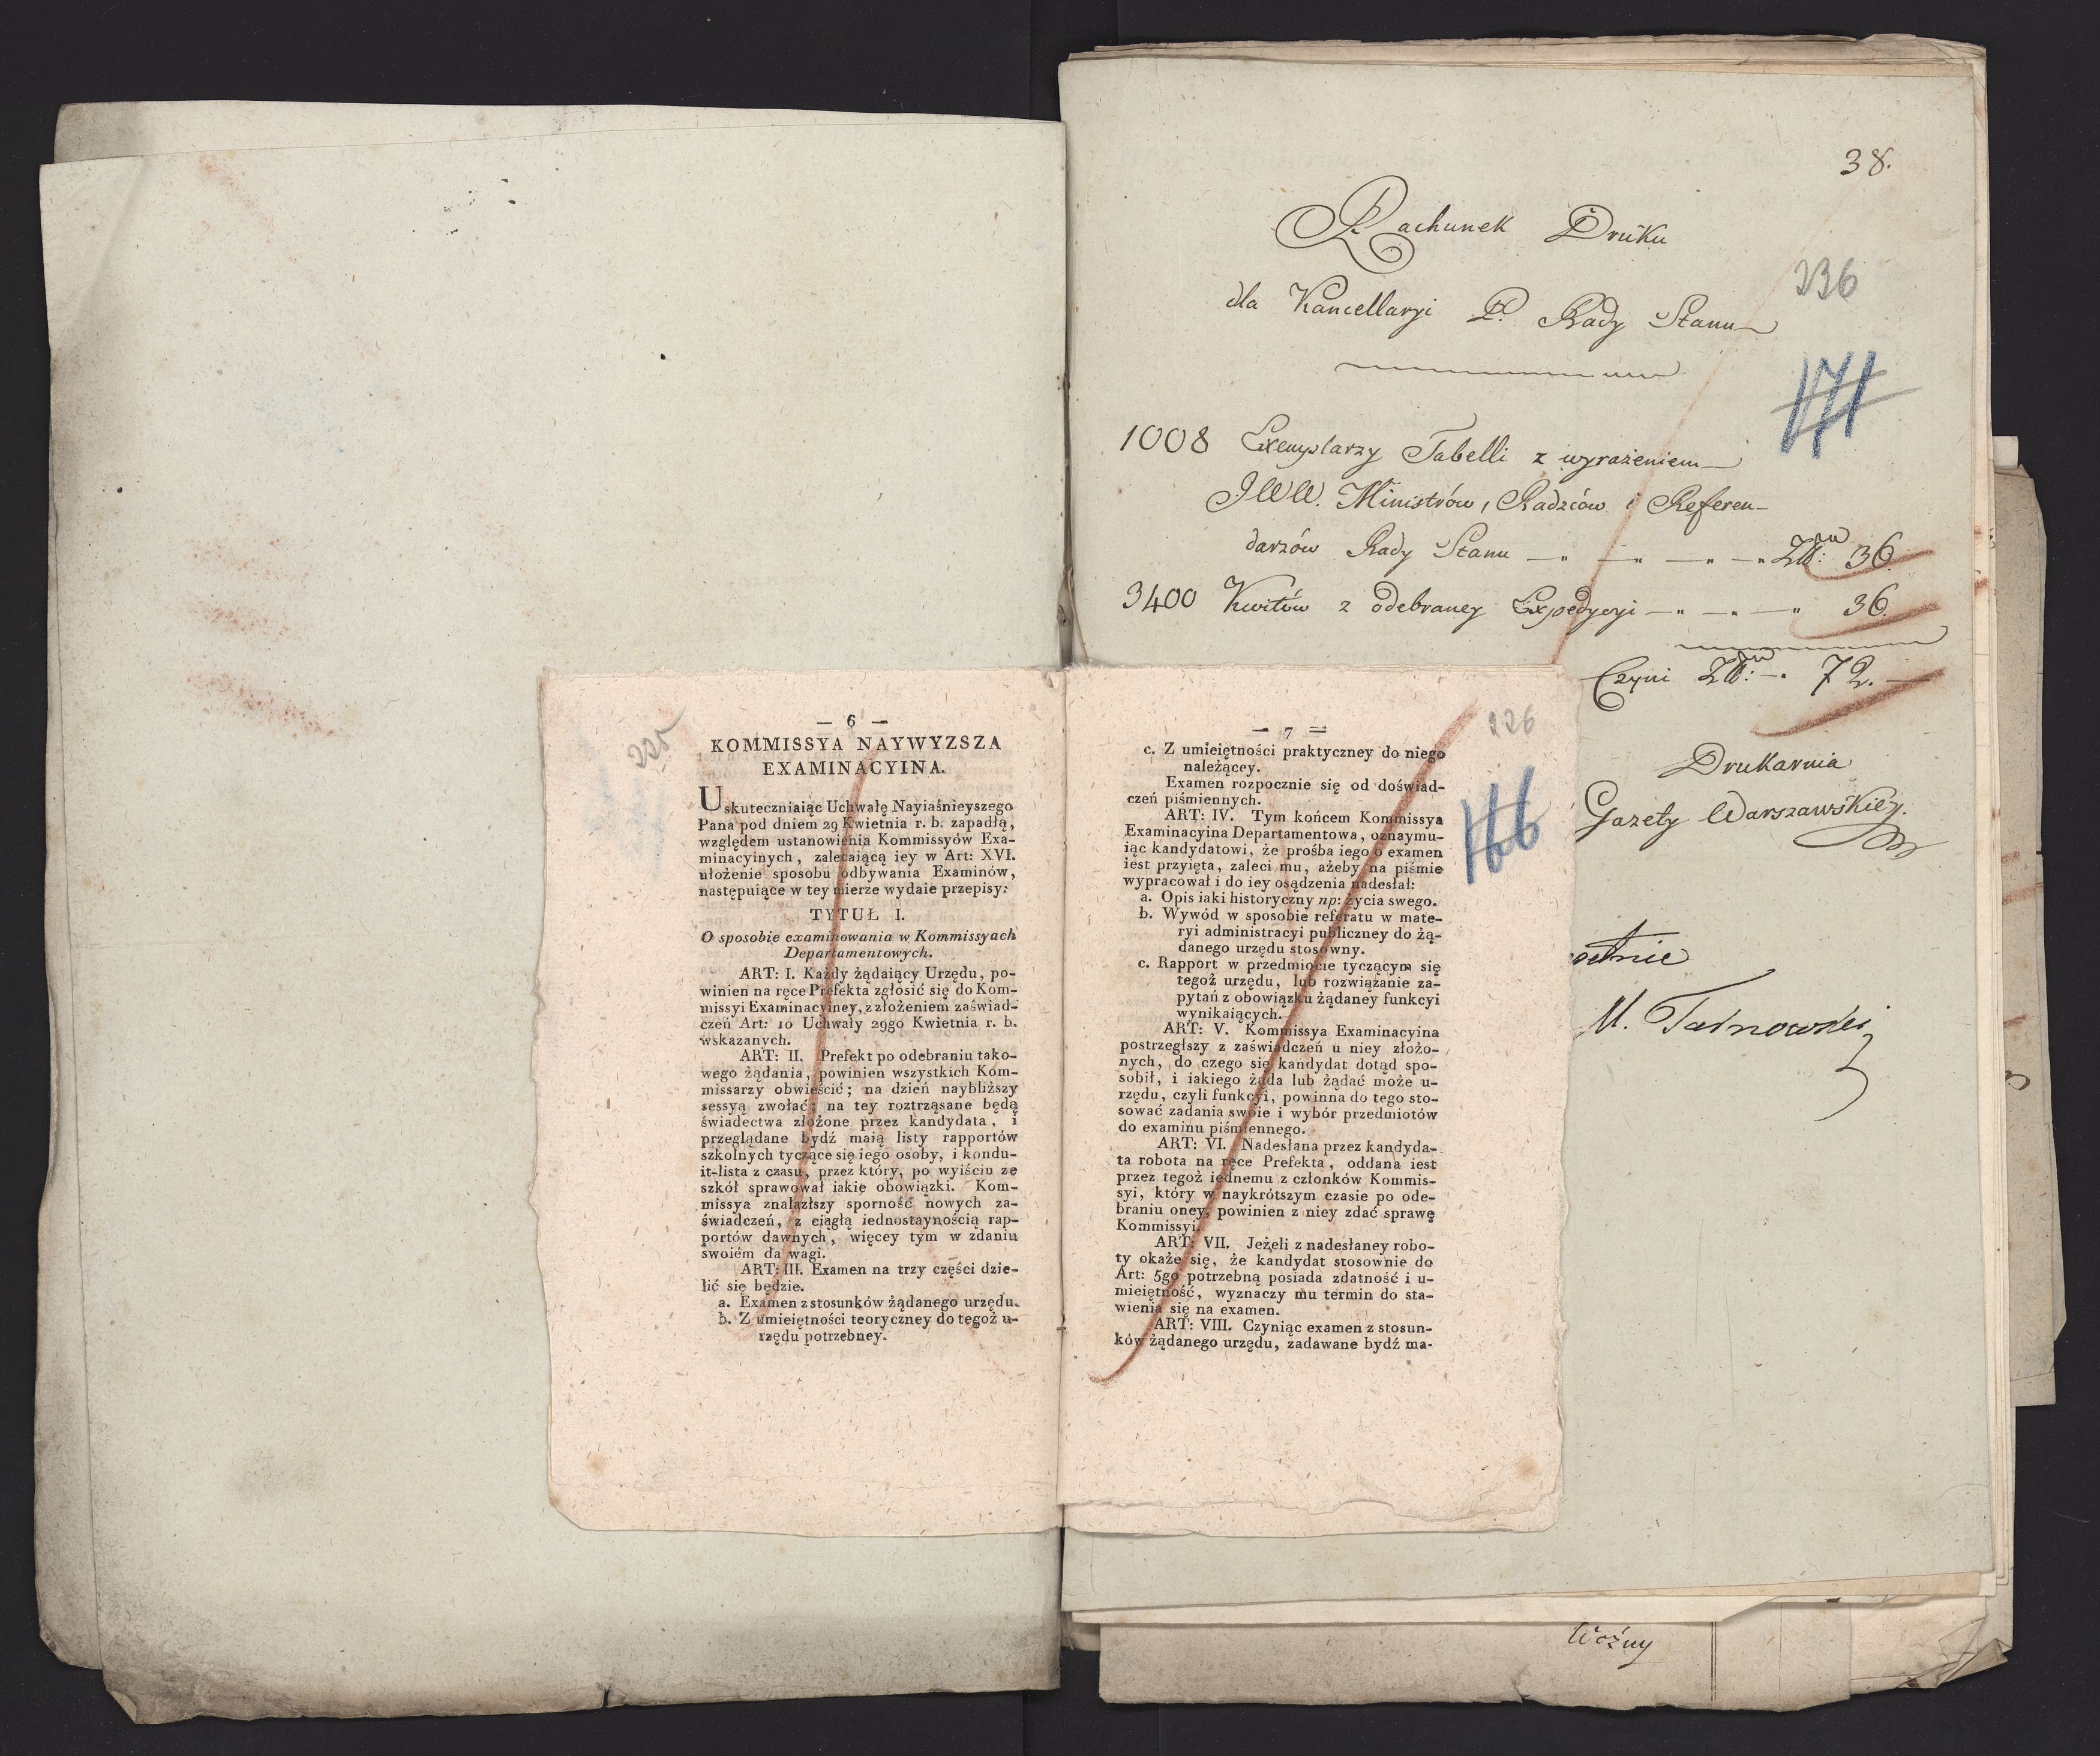 38.
Rachunek Druku
dla Kancellaryi P. Rady Stanu
236
171
1008 Exemplarzy Tabelli z wyrażeniem
JWW. Ministrów, Radzców i Referen-
darzów Rady Stanu — " — " — " — " Zł: 36.
3400 Kwitów z odebraney Expedycyi — " — " — " 36.
Czyni Zł: — 72.
Drukarnia
Gazety Warszawskiey.
M. Tarnowski
Woźny
225
— 6 —
KOMMISSYA NAYWYZSZA
EXAMINACYINA.
Uskuteczniaiąc Uchwałę Nayiaśnieyszego
Pana pod dniem 29 Kwietnia r. b. zapadłą,
względem ustanowienia Kommissyów Exa-
minacyinych, zalecaiącą iey w Art: XVI.
ułożenie sposobu odbywania Examinów,
następuiące w tey mierze wydaie przepisy:
TYTUŁ I.
O sposobie examinowania w Kommissyach
Departamentowych.
ART: I. Każdy żądaiący Urzędu, po-
winien na ręce Prefekta zgłosić się do Kom-
missyi Examinacyiney, z złożeniem zaświad-
czeń Art: 10 Uchwały 29go Kwietnia r. b.
wskazanych.
ART: II. Prefekt po odebraniu tako-
wego żądania, powinien wszystkich Kom-
missarzy obwieścić; na dzień naybliższy
sessyą zwołać; na tey roztrząsane będą
świadectwa złożone przez kandydata, i
przeglądane bydź maią listy rapportów
szkolnych tyczące się iego osoby, i kondu-
it-lista z czasu, przez który, po wyiściu ze
szkół sprawował iakie obowiązki. Kom-
missya znalazłszy sporność nowych za-
świadczeń, z ciągłą iednostaynością rap-
portów dawnych, więcey tym w zdaniu
swoiém da wagi.
ART: III. Examen na trzy części dzie-
lić się będzie.
a. Examen z stosunków żądanego urzędu.
b. Z umieiętności teoryczney do tegoż u-
rzędu potrzebney.
226
166
— 7 —
c. Z umieiętności praktyczney do niego
należącey.
Examen rozpocznie się od doświad-
czeń piśmiennych.
ART: IV. Tym końcem Kommissya
Examinacyina Departamentowa, oznaymu-
iąc kandydatowi, że prośba iego o examen
iest przyięta, zaleci mu, ażeby na piśmie
wypracował i do iey osądzenia nadesłał:
a. Opis iaki historyczny np: życia swego.
b. Wywód w sposobie referatu w mate-
ryi administracyi publiczney do żą-
danego urzędu stosowny.
c. Rapport w przedmiocie tyczącym się
tegoż urzędu, lub rozwiązanie za-
pytań z obowiązku żądaney funkcyi
wynikaiących.
ART: V. Kommissya Examinacyina
postrzegłszy z zaświadczeń u niey złożo-
nych, do czego się kandydat dotąd spo-
sobił, i iakiego żąda lub żądać może u-
rzędu, czyli funkcyi, powinna do tego sto-
sować zadania swoie i wybór przedmiotów
do examinu piśmiennego.
ART: VI. Nadesłana przez kandyda-
ta robota na ręce Prefekta, oddana iest
przez tegoż iednemu z członków Kommis-
syi, który w naykrótszym czasie po ode-
braniu oney, powinien z niey zdać sprawę
Kommissyi.
ART: VII. Jeżeli z nadesłaney robo-
ty okaże się, że kandydat stosownie do
Art: 5go potrzebną posiada zdatność i u-
mieiętność, wyznaczy mu termin do sta-
wienia się na examen.
ART: VIII. Czyniąc examen z stosun-
ków żądanego urzędu, zadawane bydź ma-